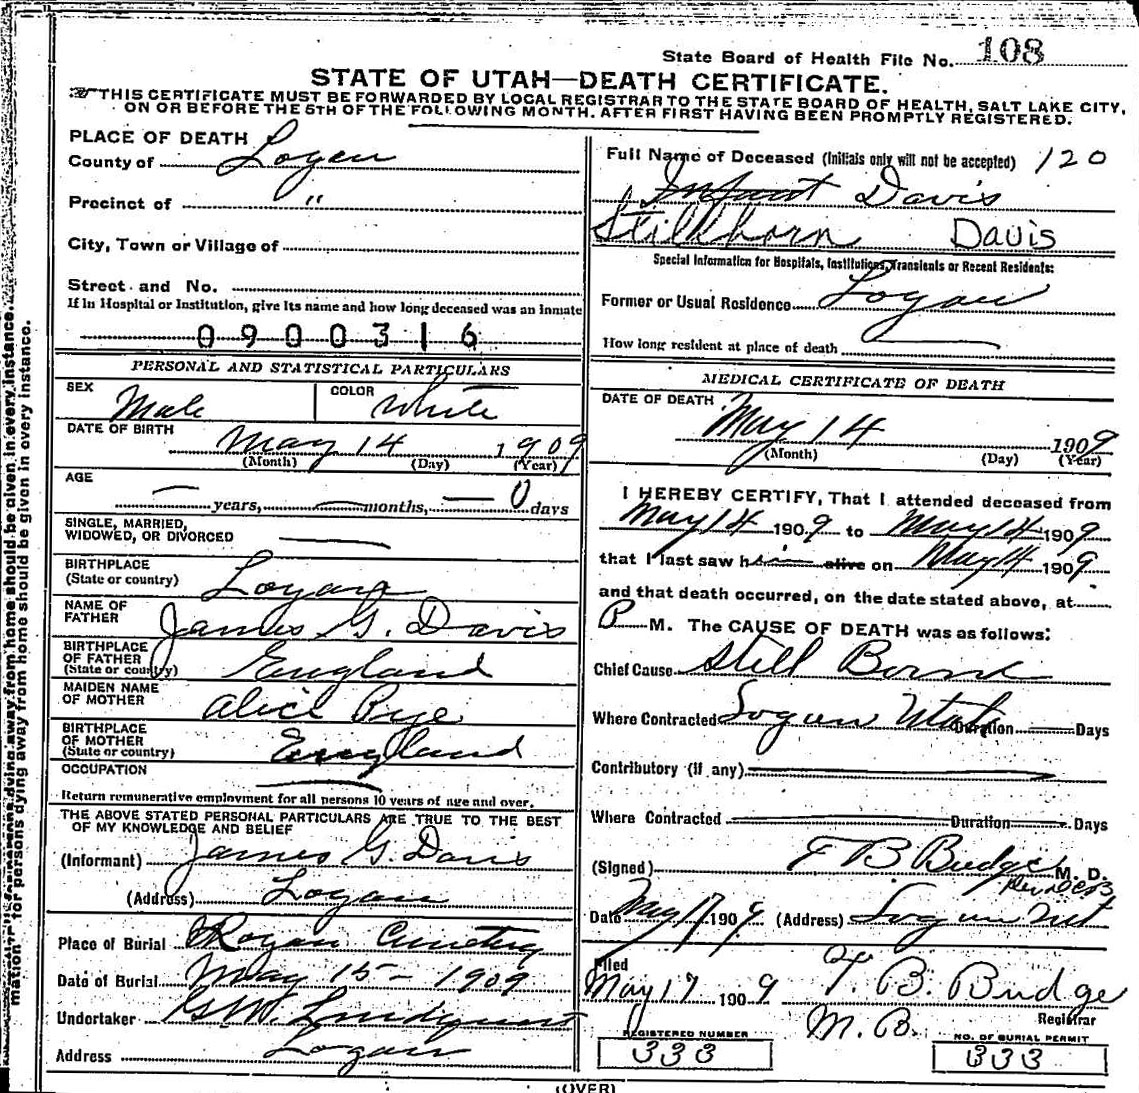 State Board of Health File No. 108
STATE OF UTAH—DEATH CERTIFICATE.
THIS CERTIFICATE MUST BE FORWARDED BY LOCAL REGISTRAR TO THE STATE BOARD OF HEALTH, SALT LAKE CITY,
ON OR BEFORE THE 5TH OF THE FOLLOWING MONTH. AFTER FIRST HAVING BEEN PROMPTLY REGISTERED.
PLACE OF DEATH
County of Logan
Precinct of "
City, Town or Village of
Street and No.
If in Hospital or Institution, give its name and how long deceased was an inmate
0900316
PERSONAL AND STATISTICAL PARTICULARS
SEX Male COLOR White
DATE OF BIRTH May 14 1909
(Month) (Day) (Year)
AGE
— years, — months, — 0 days
SINGLE, MARRIED,
WIDOWED, OR DIVORCED —
BIRTHPLACE
(State or country) Logan
NAME OF
FATHER James G. Davis
BIRTHPLACE
OF FATHER
(State or country) England
MAIDEN NAME
OF MOTHER Alice Pye
BIRTHPLACE
OF MOTHER
(State or country) England
OCCUPATION —
Return remunerative employment for all persons 10 years of age and over.
THE ABOVE STATED PERSONAL PARTICULARS ARE TRUE TO THE BEST
OF MY KNOWLEDGE AND BELIEF
(Informant) James G. Davis
(Address) Logan
Place of Burial Logan Cemetery
Date of Burial May 15 - 1909
Undertaker Lindquist
Address Logan
Full Name of Deceased (Initials only will not be accepted) 120
Infant Davis
Stillborn Davis
Special Information for Hospitals, Institutions, Transients or Recent Residents:
Former or Usual Residence Logan
How long resident at place of death
MEDICAL CERTIFICATE OF DEATH
DATE OF DEATH May 14 1909
(Month) (Day) (Year)
I HEREBY CERTIFY, That I attended deceased from
May 14 1909 to May 14 1909
that I last saw him alive on May 14 1909
and that death occurred, on the date stated above, at
P M. The CAUSE OF DEATH was as follows:
Chief Cause Still Born
Where Contracted Logan Utah Duration — Days
Contributory (if any)
Where Contracted Duration Days
(Signed) T B Budge M. D.
Date May 17 1909 (Address) Logan Ut
Filed
May 17 1909 T. B. Budge
Registrar
REGISTERED NUMBER
333
NO. OF BURIAL PERMIT
333
(OVER)
for persons dying away from home should be given in every instance.